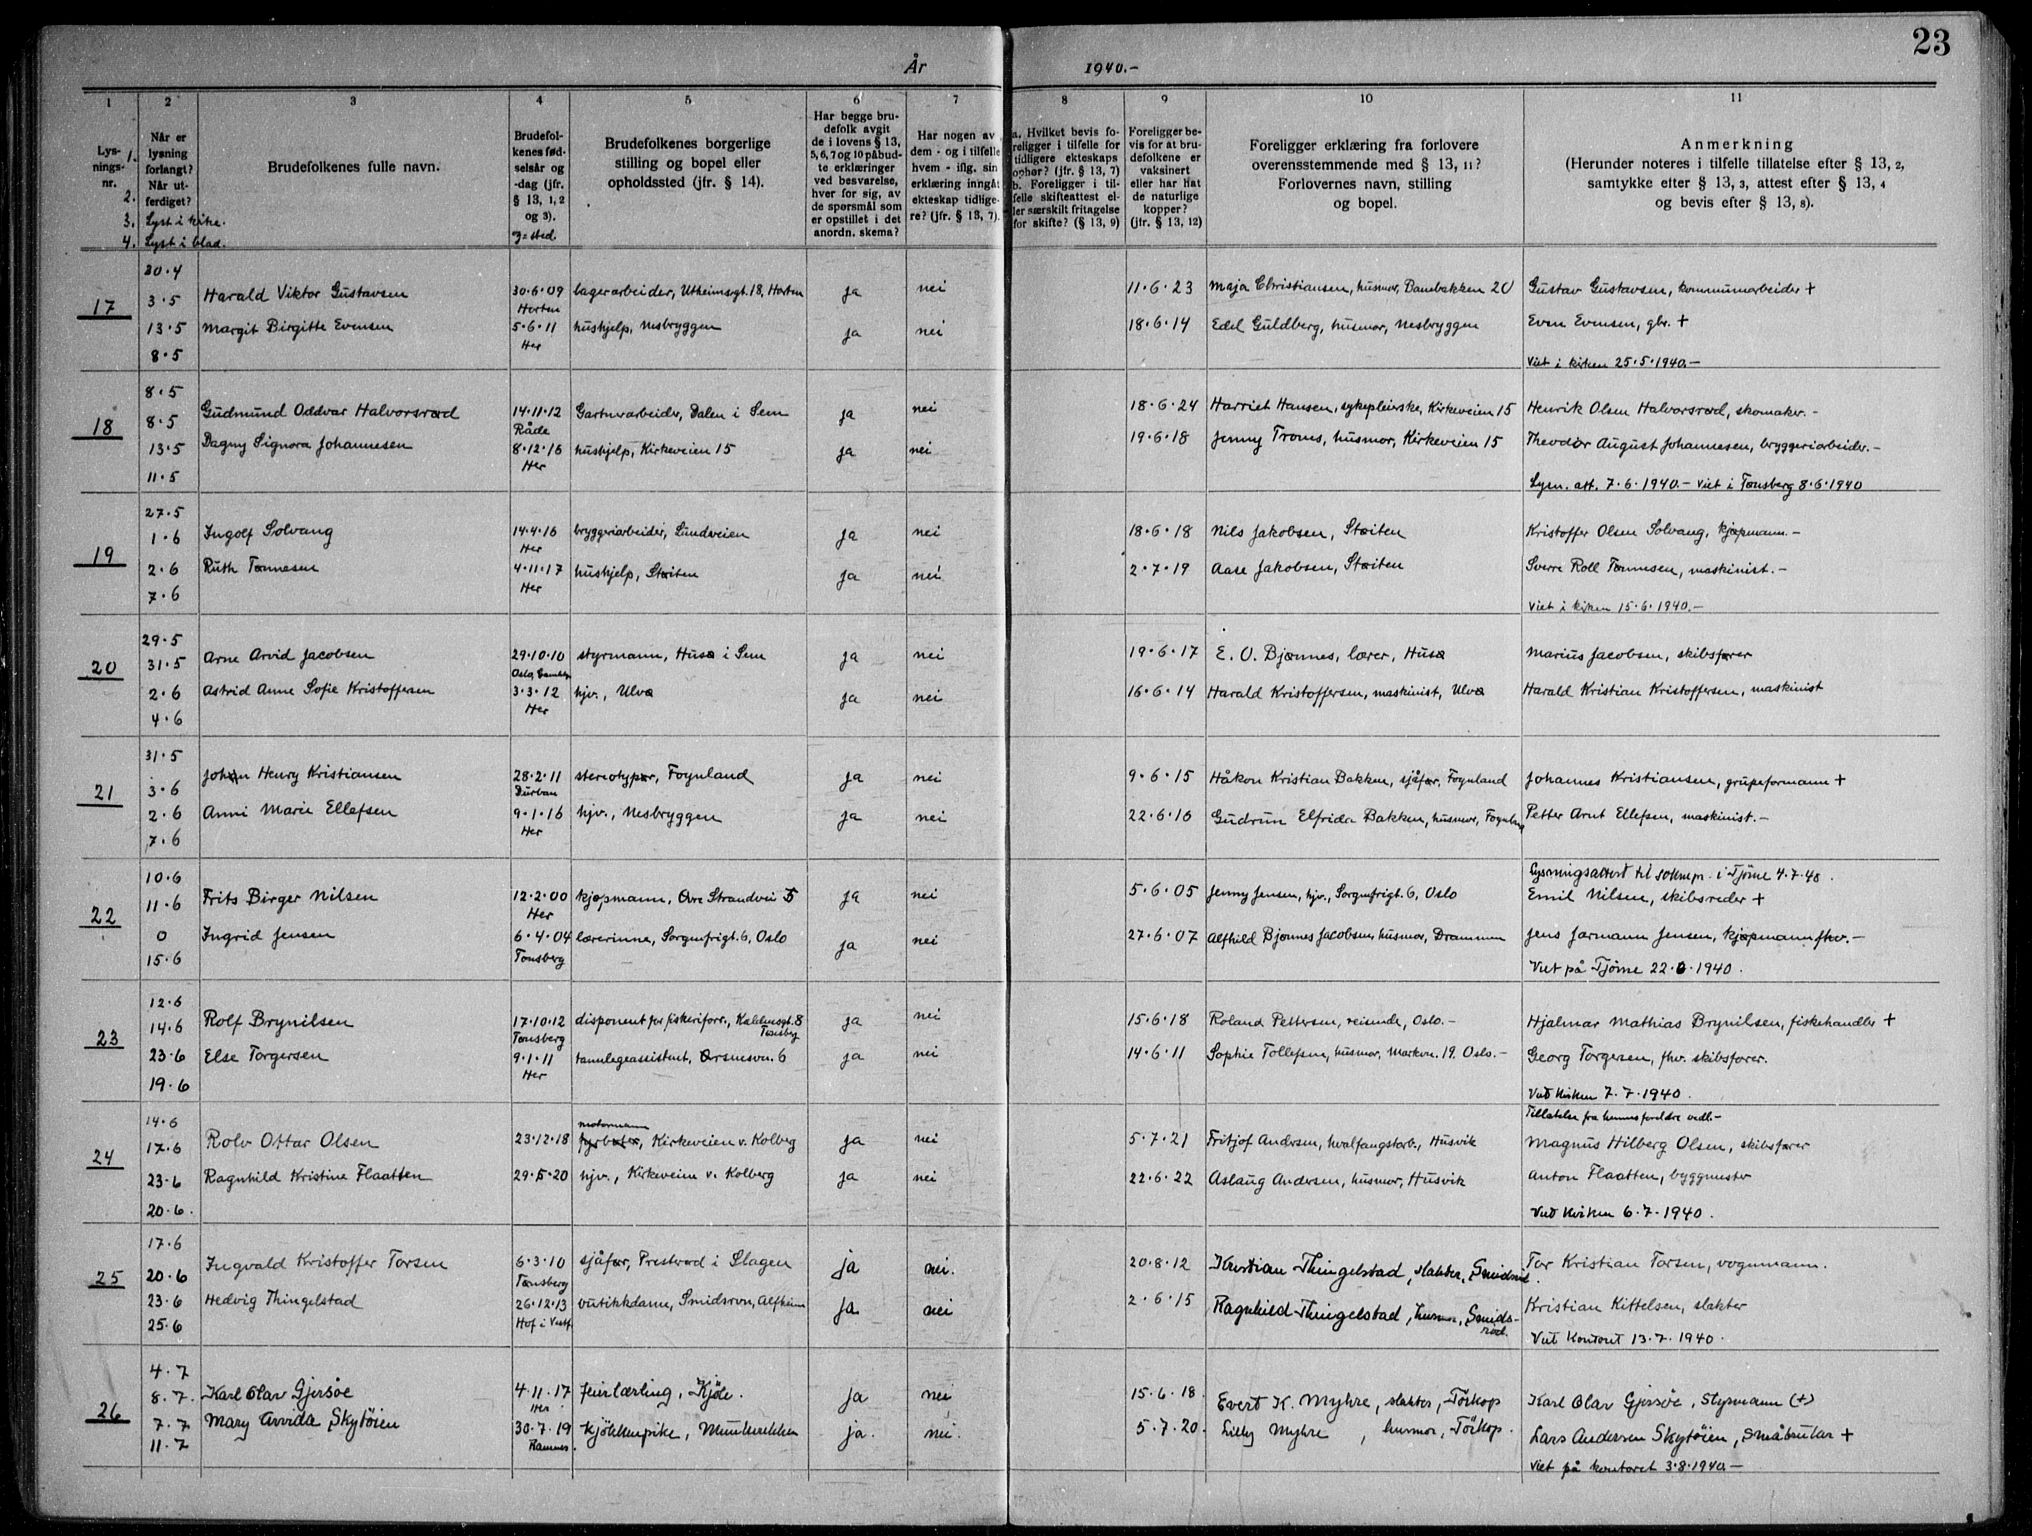 23
År 1940.-
1 2 3 4 5 6 7 8 9 10 11
Lysningsnr.
1.
2.
3. Lyst i kirke.
4. Lyst i blad.
Når er lysning forlangt? Når utferdiget?
Brudefolkenes fulle navn.
Brudefolkenes fødselsår og -dag (jfr. § 13, 1, 2 og 3).
Brudefolkenes borgerlige stilling og bopel eller opholdssted (jfr. § 14).
Har begge brudefolk avgit de i lovens § 13, 5, 6, 7 og 10 påbudte erklæringer ved besvarelse, hver for sig, av de spørsmål som er opstillet i det anordn. skema?
Har nogen av dem - og i tilfelle hvem - iflg. sin erklæring inngått ekteskap tidligere? (jfr. § 13, 7).
a. Hvilket bevis foreligger i tilfelle for tidligere ekteskaps ophør? (jfr. § 13, 7) b. Foreligger i tilfelle skifteattest eller særskilt fritagelse for skifte? (§ 13, 9)
Foreligger bevis for at brudefolkene er vaksinert eller har hat de naturlige kopper? (jfr. § 13, 12)
Foreligger erklæring fra forlovere overensstemmende med § 13, 11? Forlovernes navn, stilling og bopel.
Anmerkning (Herunder noteres i tilfelle tillatelse efter § 13, 2, samtykke efter § 13, 3, attest efter § 13, 4 og bevis efter § 13, 8).
17
30.4
3.5 Harald Viktor Gustavsen 30.6.09 Horten lagerarbeider, Utheimsgt. 18, Horten ja nei 11.6.23 Maja Christiansen, husmor, Banebakken 20 Gustav Gustavsen, kommunearbeider +
13.5 Margit Birgitte Evensen 5.6.11 Her hushjelp, Nesbryggen ja nei 18.6.14 Edel Guldberg, husmor, Nesbryggen Even Evensen, gbr. +
8.5 Viet i kirken 25.5.1940.-
18
8.5
8.5 Gudmund Oddvar Halvorsrød 14.11.12 Råde Gartnerarbeider, Dalen i Sem ja nei 18.6.24 Harriet Hansen, sykepleierske, Kirkeveien 15 Henrik Olsen Halvorsrød, skomaker.-
13.5 Dagny Signora Johannesen 8.12.16 Her hushjelp, Kirkeveien 15 ja nei 19.6.18 Jenny Troms, husmor, Kirkeveien 15 Theodor August Johannesen, bryggeriarbeider.-
11.5 Lysn. att. 7.6.1940.- Viet i Tønsberg 8.6.1940
19
27.5
1.6 Ingolf Solvang 14.4.16 Her bryggeriarbeider, Lundveien ja nei 18.6.18 Nils Jakobsen, Støiten Kristoffer Olsen Solvang, kjøpmann.-
2.6 Ruth Tønnesen 4.11.17 Her hushjelp, Støiten ja nei 2.7.19 Aase Jakobsen, Støiten Sverre Roll Tønnesen, maskinist.-
7.6 Viet i kirken 15.6.1940.-
20
29.5
31.5 Arne Arvid Jacobsen 29.10.10 Oslo, styrmann, Husø i Sem ja nei 19.6.17 E. O. Bjønnes, lærer, Husø Marius Jacobsen, skibsfører
2.6 Astrid Anne Sofie Kristoffersen 3.3.12 Her hjv., Ulvø ja nei 16.6.14 Harald Kristoffersen, maskinist, Ulvø Harald Kristian Kristoffersen, maskinist
4.6
21
31.5
3.6 John Henry Kristiansen 28.2.11 Durban stereotypør, Foynland ja nei 9.6.15 Håkon Kristian Bakken, sjåfør, Foynland Johannes Kristiansen, grupeformann +
2.6 Anni Marie Ellefsen 9.1.16 Her hjv., Nesbryggen ja nei 22.6.16 Gudrun Elfrida Bakken, husmor, Foynland Petter Arnt Ellefsen, maskinist.-
7.6
22
10.6 Lysningsattest til soknepr. i Tjøme 4.7.40.
11.6 Frits Birger Nilsen 12.2.00 Her kjøpmann, Øvre Strandvei 5 ja nei 5.6.05 Jenny Jensen, hjv., Sorgenfrigt. 6, Oslo Emil Nilsen, skibsreder +
0 Ingrid Jensen 6.4.04 Tønsberg lærerinne, Sorgenfrigt. 6, Oslo ja nei 27.6.07 Alfhild Bjønnes Jacobsen, husmor, Drammen Jens Jørmann Jensen, kjøpmann fhv.-
15.6 Viet på Tjøme 22.6.1940.
23
12.6
14.6 Rolf Brynilsen 17.10.12 Tønsberg disponent for fiskeriforr., Kaldnesgt. 8 Tønsberg ja nei 15.6.18 Roland Pettersen, reisende, Oslo.- Hjalmar Mathias Brynilsen, fiskehandler +
23.6 Else Torgersen 9.1.11 Her tannlegeassistent, Ørsnesvn. 6 ja nei 14.6.11 Sophie Tollefsen, husmor, Markvn. 19. Oslo.- Georg Torgersen, fhv. skibsfører.
19.6 Viet Kirken 7.7.1940.
24
14.6 Tillatelse fra hennes foreldre vedl.-
17.6 Rolv Ottar Olsen 23.12.18 motormann fyrbøter, Kirkeveien v. Kolberg ja nei 5.7.21 Fritjof Andersen, hvalfangstarb., Husvik Magnus Hilberg Olsen, skibsfører
23.6 Ragnhild Kristine Flaatten 29.5.20 hjv., Kirkeveien v. Kolberg ja nei 22.6.22 Aslaug Andersen, husmor, Husvik Anton Flaatten, byggmester
20.6. Viet Kirken 6.7.1940.
25
17.6
20.6 Ingvald Kristoffer Torsen 6.3.10 Tønsberg sjåfør, Presterød i Slagen ja nei. 20.8.12 Kristian Thingelstad, slakter, Smidsrød. Tor Kristian Torsen, vognmann.
23.6 Hedvig Thingelstad 26.12.13 Hof i Vestf. butikkdame, Smidsrødvn, Alfheim ja nei 2.6.15 Ragnhild Thingelstad, husmor, Smidsrød. Kristian Kittelsen, slakter
25.6 Viet Kontoret 13.7.1940.
26
4.7
8.7. Karl Olav Gjersøe 4.11.17 Her feierlærling, Kjøle. ja nei 15.6.18. Evert K. Myhre, slakter, Torkop Karl Olav Gjersøe, Styrmann (+)
7.7 Mary Arvida Skytøien 30.7.19 Ramnes. kjøkkenpike, Munkerekken ja. nei. 5.7.20. Lilly Myhre, husmor, Torkop. Lars Andersen Skytøien, småbruker +
11.7 Viet på kontoret 3.8.1940.-